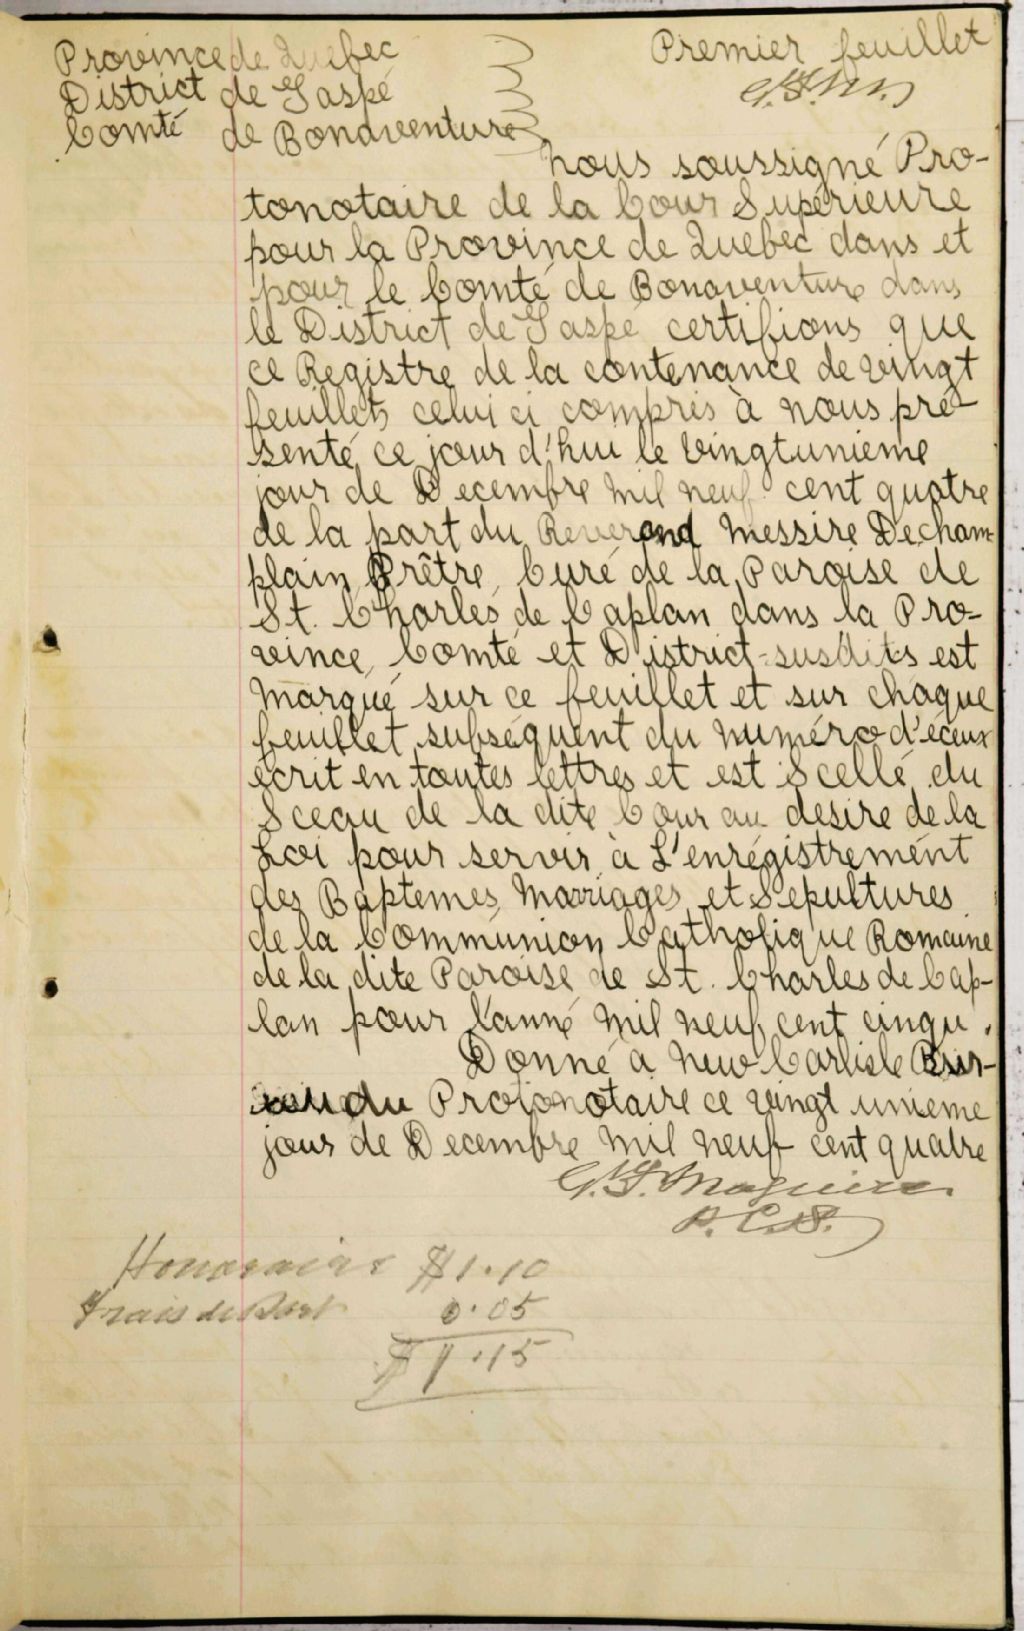 Province de Quebec
District de Gaspé
Comté de Bonaventure
Premier feuillet
G.F.M.
Nous soussigné Pro-
tonotaire de la Cour Supérieure
pour la Province de Quebec dans et
pour le Comté de Bonaventure dans
le District de Gaspé certifions que
ce Registre de la contenance de vingt
feuillets celui ci compris à nous pré-
senté ce jour d'hui le vingtunieme
jour de Decembre mil neuf cent quatre
de la part du Reverend Messire Decham-
plain Prêtre Curé de la Paroise de
St. Charles de Caplan dans la Pro-
vince, Comté et District susdits est
Marqué sur ce feuillet et sur chaque
feuillet subséquent du numéro d'éceux
écrit en toutes lettres et est Scellé du
Sceau de la dite Cour au desire de la
Loi pour servir à L'enrégistrement
des Baptemes, Marriages et Sepultures
de la Communion Catholique Romaine
de la dite Paroise de St. Charles de Cap-
lan pour l'anné mil neuf cent cinqu.
Donné à New Carlisle
du Protonotaire ce vingt unieme
jour de Decembre mil neuf cent quatre
G.F. Maguire
P.C.S.
Honoraire $1.10
Frais de Port 0.05
$1.15